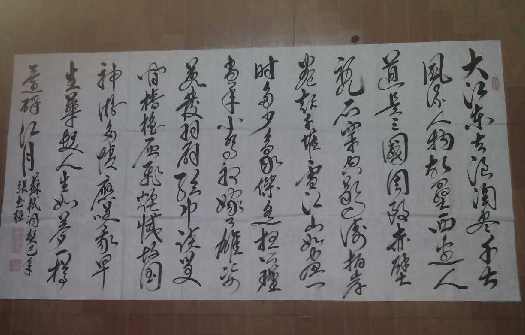 大江东去浪淘尽千古
风流人物故垒西边人
道是三國周郎赤壁
乱石穿空惊涛拍岸
卷起千堆雪江山如画一
时多少豪傑遥想公瑾
当年小乔初嫁雄姿
英发羽扇纶巾谈笑
间樯橹灰飞烟灭故國
神游多情应笑我早
生華发人生如梦一樽
还酹江月
苏轼词癸巳年